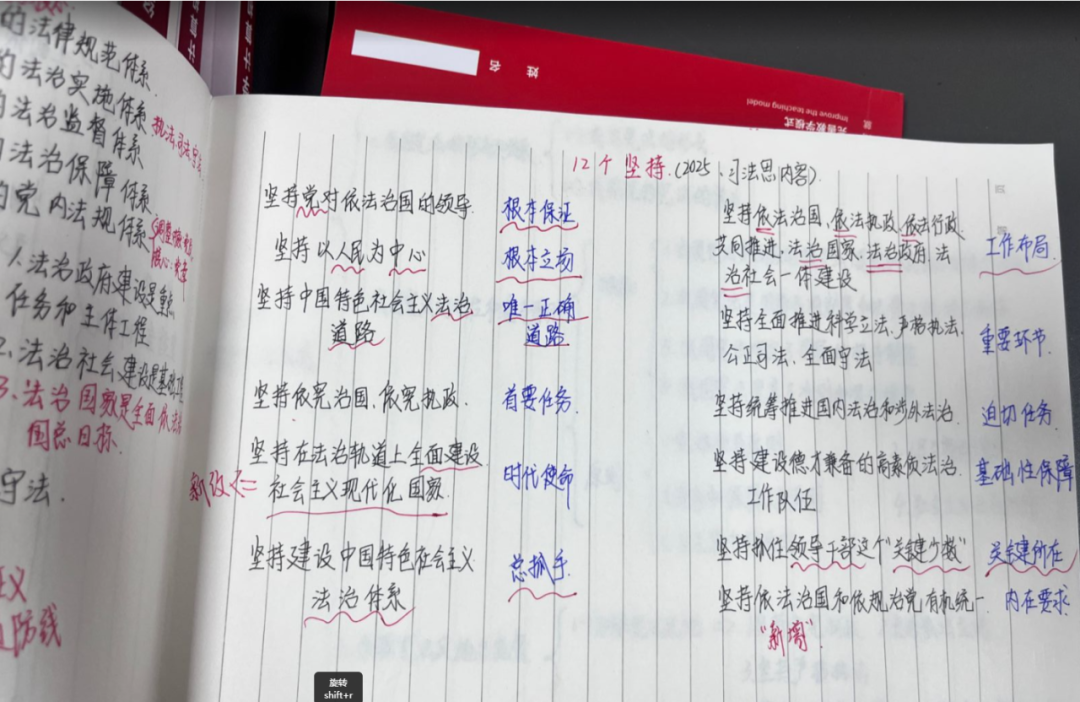 的法律规范体系
的法治实施体系
法治监督体系
执法、司法、守法
法治保障体系
的党内法规体系
1. 法治政府建设是重点
任务和主体工程
2. 法治社会建设是基础工
3. 法治国家是全面依法治
国总目标.
守法.
防线
姓名
Improve the teaching model
完善教学模式
12个坚持.(2025、习法思内容).
坚持党对依法治国的领导. 根本保证
坚持以人民为中心 根本立场
坚持中国特色社会主义法治 唯一正确
道路 道路
坚持依宪治国、依宪执政. 首要任务.
坚持在法治轨道上全面建设
新改<= 社会主义现代化国家. 时代使命
坚持建设中国特色社会主义 总抓手.
法治体系
坚持依法治国、依法执政、依法行政.
共同推进,法治国家.法治政府.法 工作布局.
治社会一体建设
坚持全面推进科学立法、严格执法、 重要环节.
公正司法、全面守法
坚持统筹推进国内法治和涉外法治. 迫切任务.
坚持建设德才兼备的高素质法治. 基础性保障
工作队伍
坚持抓住领导干部这个"关键少数" 关键所在
坚持依法治国和依规治党有机统一. 内在要求
"新增"
旋转
shift+r